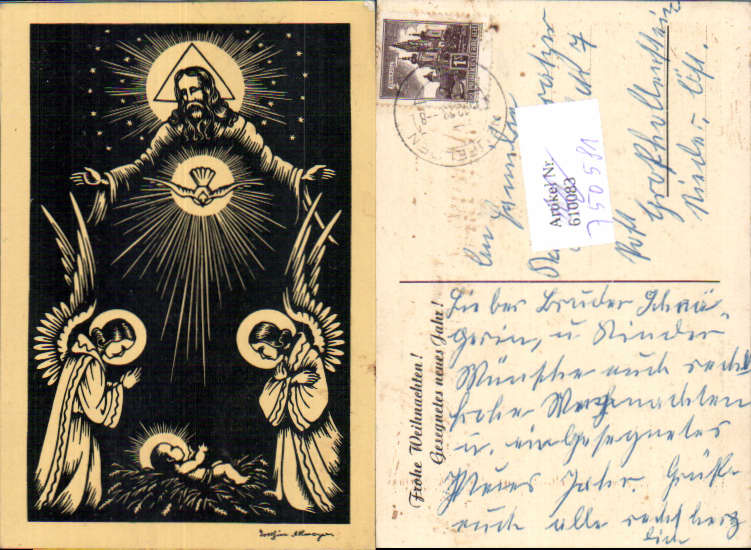 Frohe Weihnachten!
Gesegnetes neues Jahr!
Artikel Nr.
610083
750581
An
Familie
Post
Großhollenstein
Lieber Bruder Schwä-
gerin, u. Kinder
Wünsche euch recht
frohe Weihnachten
u. ein Gesegnetes
Neues Jahr. Grüße
euch alle recht herz
lich